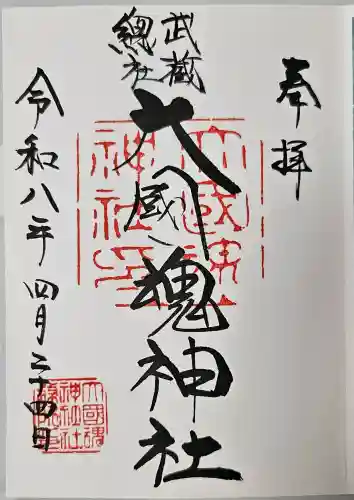 奉拝
武蔵
總社
大國魂神社
令和八年 四月二十四日
大國魂
神社